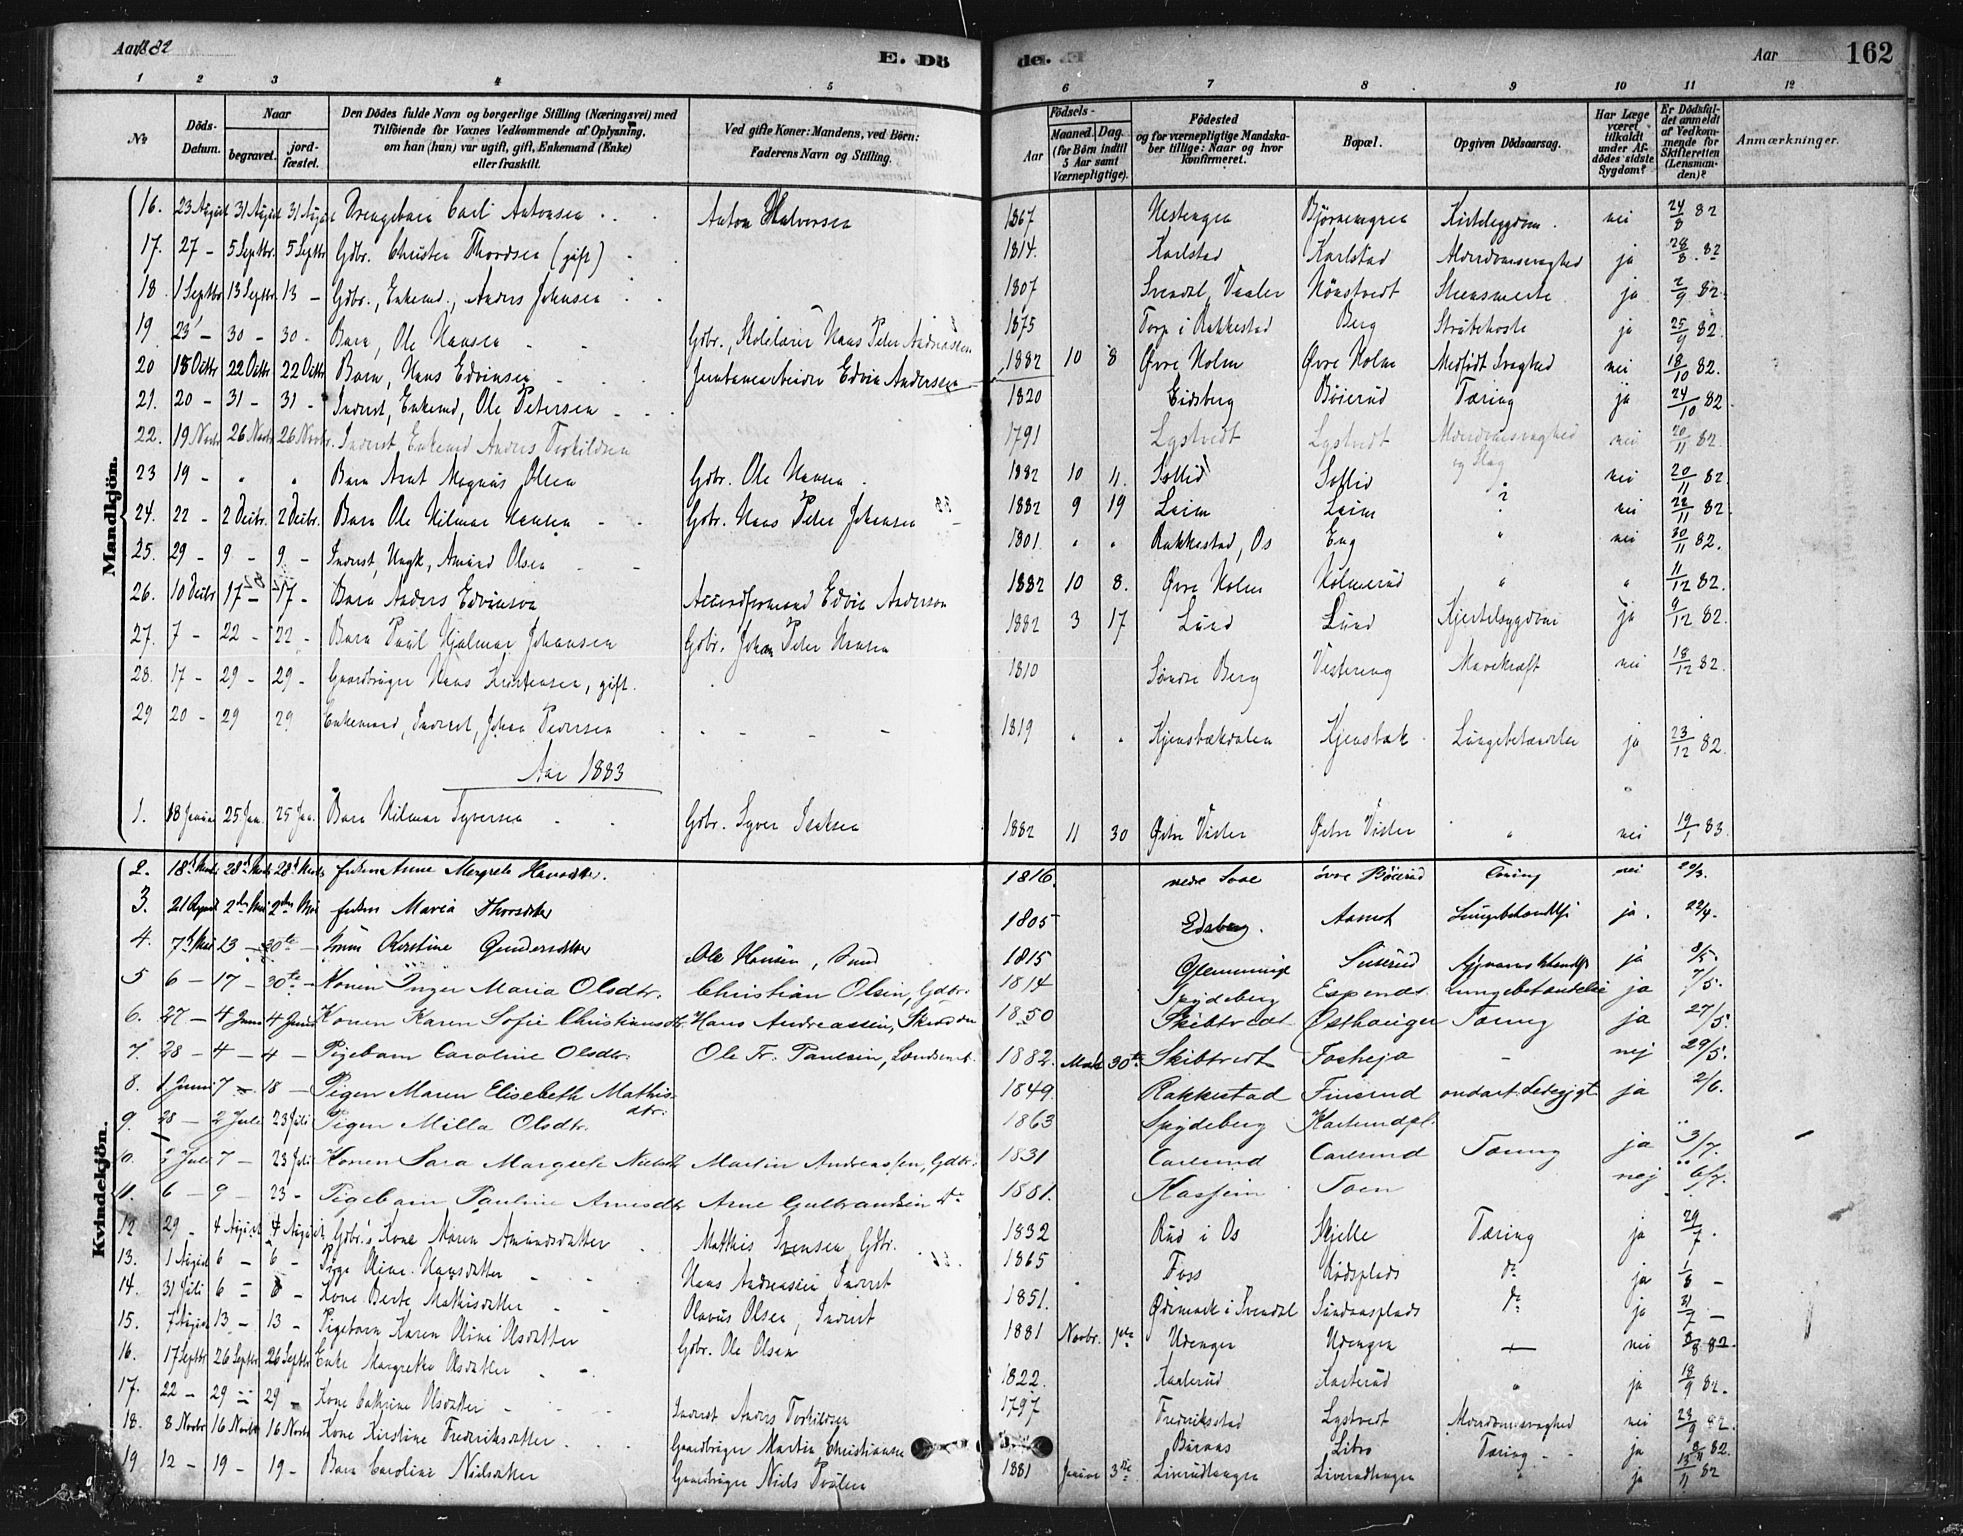 Aar 1882
E. Dö
de.
Aar
162
1 2 3 4 5 6 7 8 9 10 11 12
No
Döds-Datum.
Naar
begravet.
jord-fæstet.
Den Dödes fulde Navn og borgerlige Stilling (Næringsvei) med
Tilföiende for Voxnes Vedkommende af Oplysning,
om han (hun) var ugift, gift, Enkemand (Enke)
eller fraskilt.
Ved gifte Koner: Mandens, ved Börn:
Faderens Navn og Stilling.
Födsels-
Aar
Maaned. Dag.
(for Börn indtil
5 Aar samt
Værnepligtige).
Födested
og for værnepligtige Mandska-
ber tillige: Naar og hvor
Konfirmeret.
Bopæl.
Opgiven Dödsaarsag.
Har Læge
været
tilkaldt
under Af-
dödes sidste
Sygdom?
Er Dödsfal-
det anmeldt
af Vedkom-
mende for
Skifteretten
(Lensman-
den)?
Anmærkninger.
Mandkjön.
16. 23 August 31 August 31 August Drengebarn Carl Antonsen Anton Halvorsen 1867 Nestengen Björnengen nei 24/8 82
17. 27 - 5 Septbr. 5 Septbr Gdbr. Christen Thordsen (gift) 1814. Karlstad Karlstad Alderdomssvaghed ja 28/8. 82
18. 1 Septbr 13 Septbr. 13 - Gdbr., Enkemd., Anders Johnsen 1807 Svendal, Vaaler Nönstvedt Steensmerte ja 2/9 82.
19. 23 - 30 - 30 - Barn, Ole Hansen Gdbr., Skolelærer Hans Peter Andreassen 1875 Torp i Rakkestad Berg Strubehoste ja 25/9 82.
20 18 Octbr 22 Octbr 22 Octbr Barn, Hans Edvinsen Jernbanearbeider Edvin Andersen 1882 10 8 Øvre Holm Øvre Holm Medfödt Svaghed nei 18/10 82.
21. 20 - 31 - 31 - Inderst, Enkemd, Ole Petersen 1820 Eidsberg Böierud Tæring ja 24/10 82
22. 19 Novbr 26 Novbr 26 Novbr. Inderst Enkemd Anders Torkildsen 1791 Lystvedt Lystvedt Alderdomssvaghed og Slag nei 20/11 82.
23 19 - " " Barn Arnt Magnus Olsen Gdbr. Ole Hansen 1882 10 11. Sollid Sollid " nei 20/11 82.
24. 22 - 2 Decbr. 2 Decbr. Barn Ole Hilmar Hansen Gdbr. Hans Peter Johansen 1882 9 19 Leim Leim ? nei 22/11 82.
25. 29 - 9 - 9 - Inderst, Ungk, Amund Olsen 1801. " " Rakkestad, Os Eng " nei 30/11 82.
26. 10 Decbr 17 - 17 - Barn Anders Edvinsen Accordformand Edvin Anderson 1882 10 8. Øvre Holm Holmerud " " 11/12 82.
27. 7 - 22 - 22 - Barn Paul Hjalmar Johansen Gdbr. Johan Peter Hansen 1882 3 17 Lund Lund Kjertelsygdom ja 9/12 82.
28. 17 - 29 - 29 - Gaardbruger Hans Kristensen, gift. 1810 Söndre Berg Vestereng Mavekræft nei 18/12 82.
29 20 - 29 29 Enkemand, Inderst, Johan Pedersen 1819 " " Kjensbækdalen Kjensbæk Lungebetændelse ja 23/12 82.
Aar 1883
1. 18 Januar 25 Jan. 25 Jan. Barn Hilmar Syversen Gdbr. Syver Isaksen 1882 11 30 Østre Visler Østre Visler " nei 19/1 83.
Kvindekjön.
2. 18de Marts 28de Marts 28de Marts Enken Anne Margrete Hansdtr. 1816. nedre övre Böierud Tæring nei 20/3.
3. 21 April 2den Mai 2den Mai Enken Maria Thorsdtr 1805 Edsberg. Aamot ja. 22/4.
4. 7de Mai 13 - 30te - Konen Kirstine Gundersdtter Ole Hansen, Sund 1815 Glemminge Sulerud ja 8/5.
5 6 - 17 - 30te - Konen Inger Maria Olsdtr. Christian Olsen, Gdbr. 1814 Spydeberg Espends. Lungebetændelse ja 7/5.
6. 27 - 4 Juni 4 Juni Konen Karen Sofie Christiansdtr. Hans Andreassen, 1850 Skibtvedt Østhauger Tæring ja 27/5.
7. 28 - 4 - 4 - Pigebarn Caroline Olsdtr. Ole Fr. Paulsen, 1882. Marts 30te Skibtvedt Foshejа - nej 29/5.
8. 1 Juni 7 - 18 - Pigen Maren Elisebeth Mathisdtr. 1849. Rakkestad Finsrud ondart. Ledegigt ja 2/6.
9. 28 - 2 Juli 23 Juli Pigen Milla Olsdtr. 1863 Spydeberg Karlsrudpl. "
10. 3 Juli 7 - 23 Juli Konen Sara Margrete Nielsdtr Martin Andreassen, Gdbr. 1831 Carlsrud Carlsrud Tæring ja 3/7.
11. 6 - 9 - 23 - Pigebarn Pauline Arnesdtr Arne Gulbrandsen Do 1881. Kasjeim Toen nej 6/7.
12 29 - 4 August 4 August Gdbr.'s Kone Maren Amundsdatter Matthis Svensen, Gdbr. 1832 Rud i Os Skjelle Tæring ja 29/7.
13. 1 August 6 - 6 - Pige Oline Hansdatter Hans Andreassen Inderst 1865 Foss Rödsplads do ja 1/8 -
14. 31 Juli 6 - 6 - Kone Berte Mathisdatter Olavus Olsen, Inderst 1851. Ødemark i Svendal Sundaasplads do ja 31/7 -
15. 7 August 13 - 13 - Pigebarn Karen Oline Olsdatter Gdbr. Ole Olsen 1881 Novbr. 1ste Udengen Udengen - nei 8/8 82.
16. 17 Septbr 26 Septbr 26 Septbr Enke Margrethe Olsdatter 1822. Kaslerud Kasterud " ja 18/9 82.
17. 22 - 29 - 29 - Kone Cathrine Olsdatter Inderst Anders Torkildsen 1797 Fredriksstad Lystvedt Alderdomssvaghed nei 23/9 82.
18. 8 Novbr 16 Novbr 16 Novbr Kone Kirstine Fredriksdatter Gaardbruger Martin Christiansen Buraas Libro Tæring ja 8/11 82.
19. 12 - 19 - 19 - Barn Caroline Nielsdatter Gaardbruger Niels Poulsen 1881 Januar 3die Liverudhengen Liverudhengen " ja 13/11 82